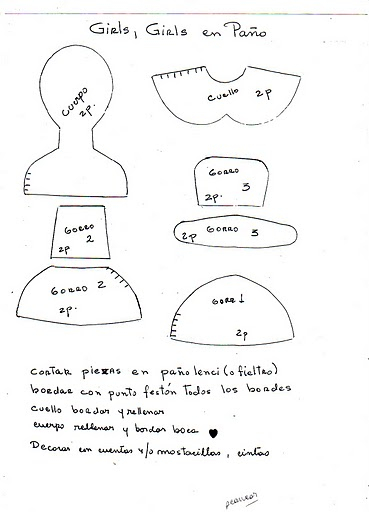 Girls, Girls en Paño
cuerpo
2p.
cuello 2p
GORRO
3
2p.
GORRO
2p 2
2p GORRO 3
GORRO 2
2p.
GORR 1
2p
cortar piezas en pañolenci (o fieltro)
bordar con punto festón todos los bordes
cuello bordar y rellenar
cuerpo rellenar y bordar boca
Decorar con cuentas y/o mostacillas, cintas